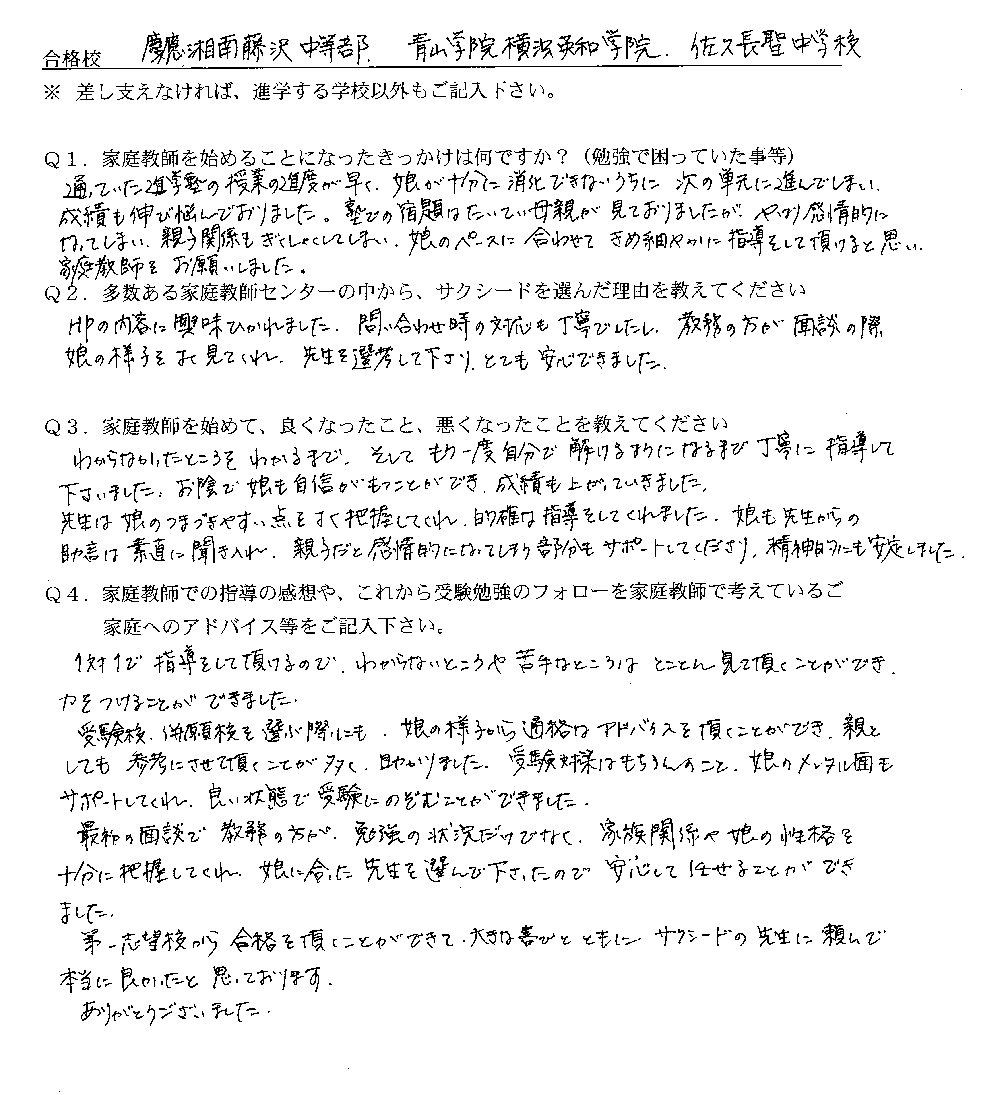 合格校 慶應湘南藤沢中等部. 青山学院横浜英和学院. 佐久長聖中学校
※ 差し支えなければ、進学する学校以外もご記入下さい。
Q1．家庭教師を始めることになったきっかけは何ですか？（勉強で困っていた事等）
通っていた進学塾の授業の進度が早く、娘が十分に消化できないうちに次の単元に進んでしまい、
成績も伸び悩んでおりました。塾での宿題はたいてい母親が見ておりましたが、やはり感情的に
なってしまい、親子関係もぎくしゃくしてしまい、娘のペースに合わせてきめ細やかに指導をして頂けると思い、
家庭教師をお願いしました。
Q2．多数ある家庭教師センターの中から、サクシードを選んだ理由を教えてください
HPの内容に興味ひかれました。問い合わせ時の対応も丁寧でしたし、教務の方が面談の際
娘の様子をよく見てくれ、先生を選考して下さり、とても安心できました。
Q3．家庭教師を始めて、良くなったこと、悪くなったことを教えてください
わからなかったところをわかるまで、そしてもう一度自分で解けるようになるまで丁寧に指導して
下さいました。お陰で娘も自信がもつことができ、成績も上がっていきました。
先生は娘のつまづきやすい点をすぐ把握してくれ、的確な指導をしてくれました。娘も先生からの
助言は素直に聞き入れ、親子だと感情的になってしまう部分もサポートしてくださり、精神的にも安定しました。
Q4．家庭教師での指導の感想や、これから受験勉強のフォローを家庭教師で考えているご
家庭へのアドバイス等をご記入下さい。
1対1で指導をして頂けるので、わからないところや苦手なところはとことん見て頂くことができ、
力をつけることができました。
受験校、併願校を選ぶ際にも、娘の様子から適格なアドバイスを頂くことができ、親と
しても参考にさせて頂くことが多く、助かりました。受験対策はもちろんのこと、娘のメンタル面も
サポートしてくれ、良い状態で受験にのぞむことができました。
最初の面談で教務の方が、勉強の状況だけでなく、家族関係や娘の性格を
十分に把握してくれ、娘に合った先生を選んで下さったので安心して任せることができ
ました。
第一志望校から合格を頂くことができて、大きな喜びとともに、サクシードの先生に頼んで
本当に良かったと思っております。
ありがとうございました。